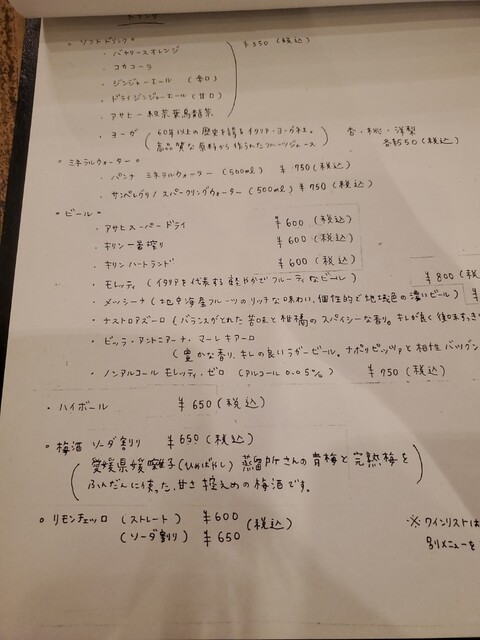 ドリンク
・ソフトドリンク。 ¥350(税込)
・バヤリースオレンジ
・コカコーラ
・ジンジャーエール (辛口)
・ドライジンジャーエール(甘口)
・アサヒ一級茶葉烏龍茶
・ヨーガ (60年以上の歴史を誇るイタリア・ヨーガ社。 杏・桃・洋梨
高品質な原料から作られたフルーツジュース) 各¥550(税込)
・ミネラルウォーター。
・パンナ ミネラルウォーター (500ml) ¥750(税込)
・サンペレグリノ スパークリングウォーター (500ml) ¥750(税込)
・ビール。
・アサヒスーパードライ ¥600(税込)
・キリン一番搾り ¥600(税込)
・キリンハートランド ¥600(税込)
・モレッティ (イタリアを代表する軽やかでフルーティなビール) ¥800(税込
・メッシーナ (地中海産フルーツのリッチな味わい、個性的で地域色の濃いビール) ¥
・ナストロアズーロ (バランスがとれた苦味と柑橘のスパイシーな香り。キレが良く後味すっき
・ビッラ・アントニアーナ・マーレキアーロ
(豊かな香り、キレの良いラガービール、ナポリピッツァと相性バツグン
・ノンアルコール モレッティ・ゼロ (アルコール 0.05%) ¥750(税込)
・ハイボール ¥650(税込)
・梅酒 ソーダ割り ¥650(税込)
(愛媛県媛囃子(ひめばやし)蒸留所さんの青梅と完熟梅を
ふんだんに使った、甘さ控えめの梅酒です。)
・リモンチェッロ (ストレート) ¥600 (税込)
(ソーダ割り) ¥650
※ワインリストは
別メニューを